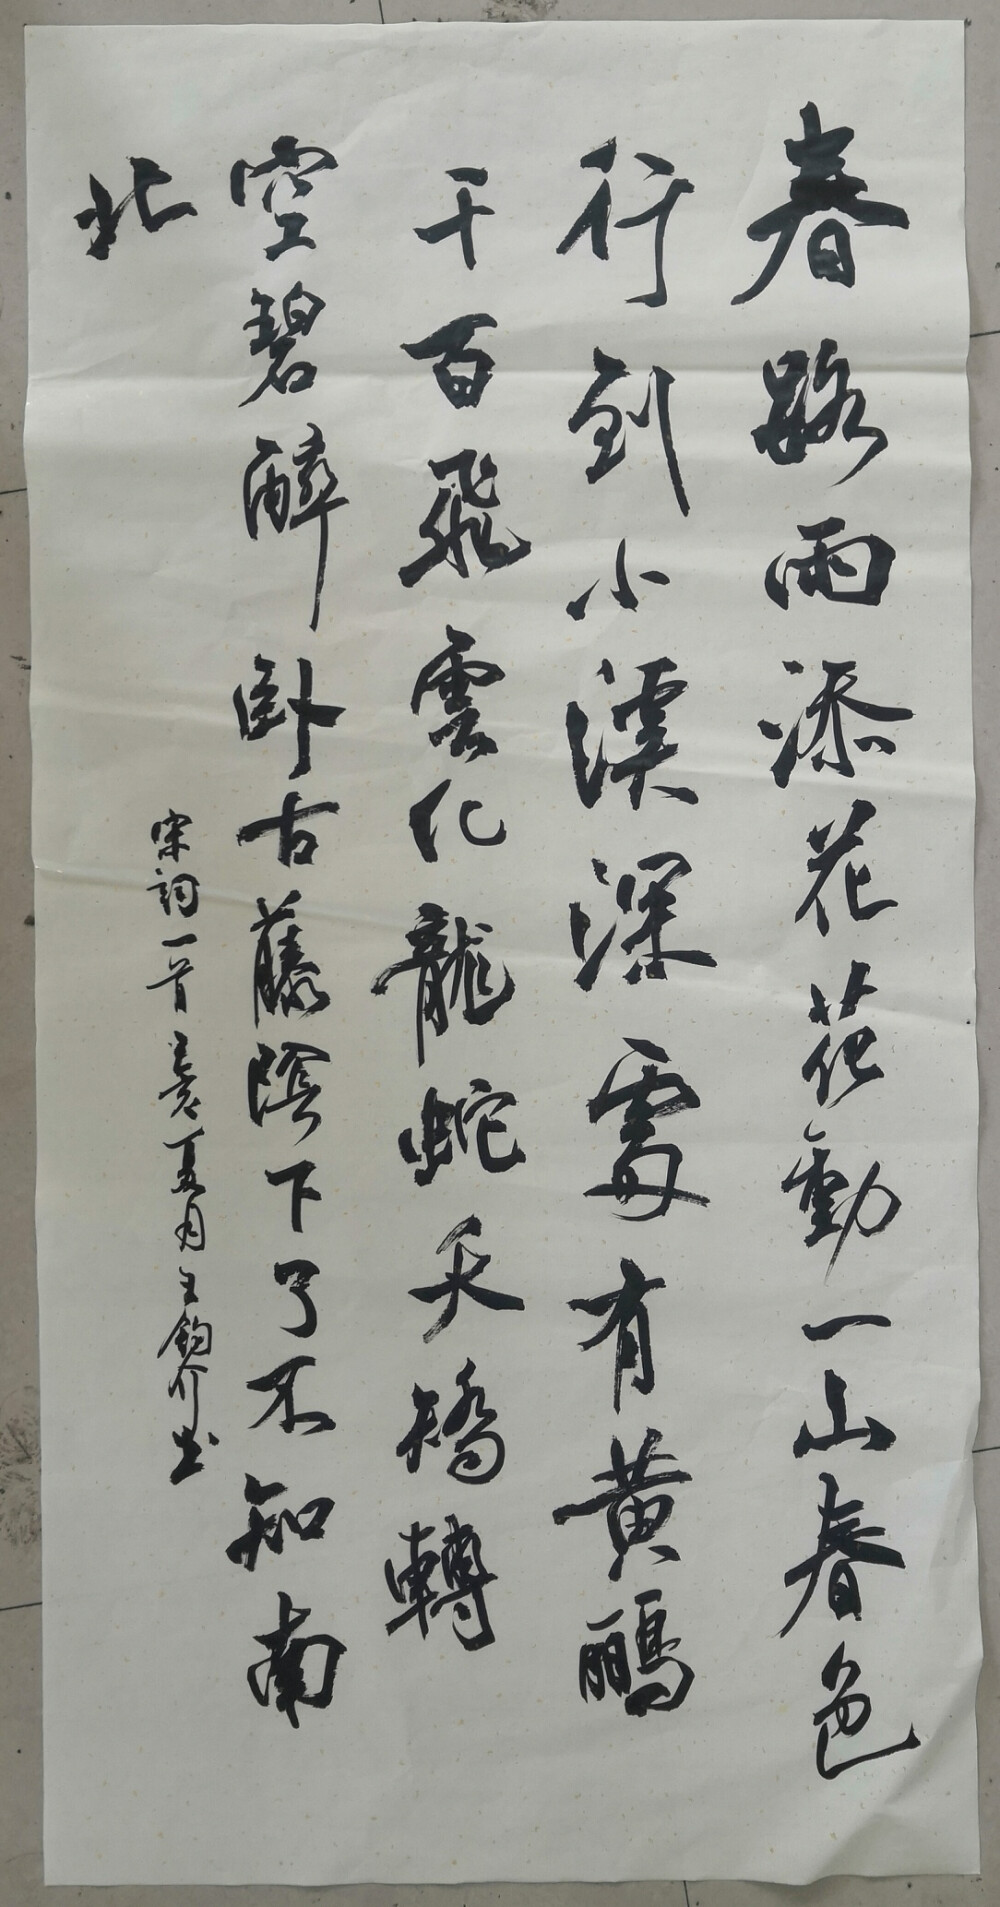 春路雨添花花動一山春色
行到小溪深處有黄鸝
千百飛雲化龍蛇夭矯轉
空碧醉卧古藤陰下了不知南
北
宋詞一首 夏月王鈞介书